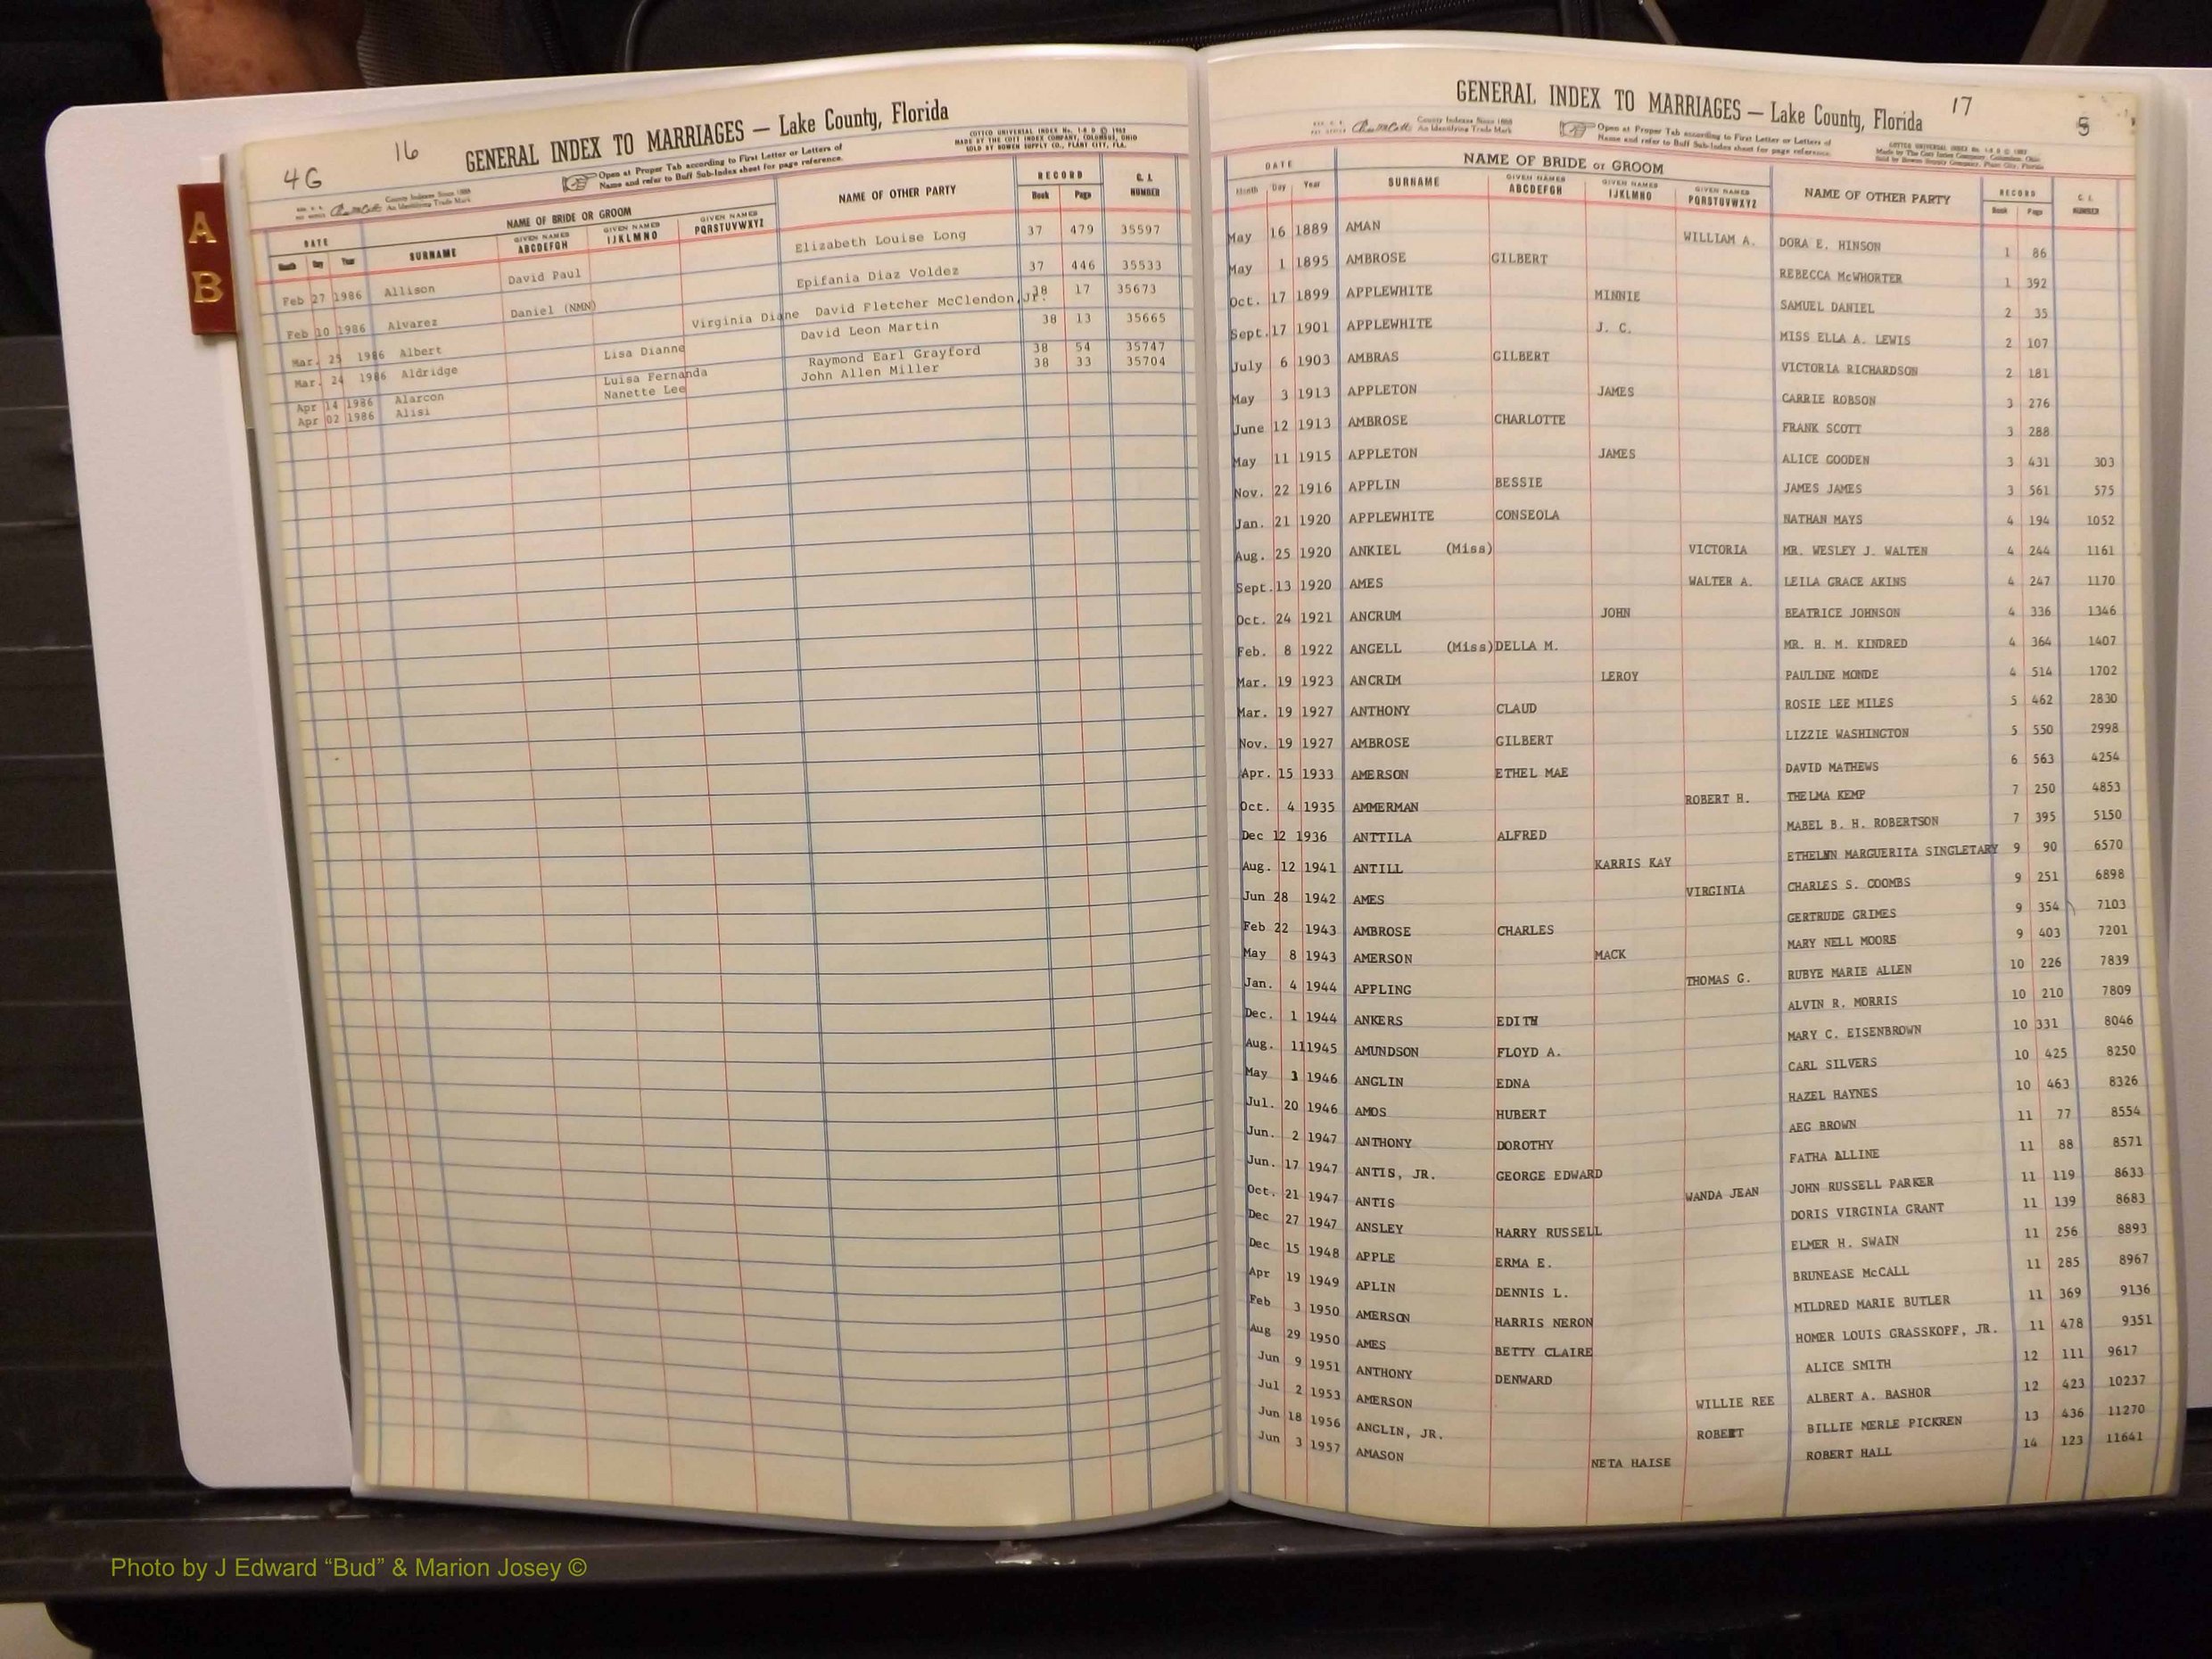 A
B
4G
16
GENERAL INDEX TO MARRIAGES — Lake County, Florida
County Indexes Since 1888
An Identifying Trade Mark
Open at Proper Tab according to First Letter or Letters of
Name and refer to Buff Sub-Index sheet for page reference.
COTTCO UNIVERSAL INDEX No. 1-8 D © 1962
MADE BY THE COTT INDEX COMPANY, COLUMBUS, OHIO
SOLD BY BOWEN SUPPLY CO., PLANT CITY, FLA.
DATE NAME OF BRIDE OR GROOM NAME OF OTHER PARTY RECORD C. I. NUMBER
Month Day Year SURNAME GIVEN NAMES ABCDEFGH GIVEN NAMES IJKLMNO GIVEN NAMES PQRSTUVWXYZ Book Page
Feb 27 1986 Allison David Paul Elizabeth Louise Long 37 479 35597
Feb 10 1986 Alvarez Daniel (NMN) Epifania Diaz Voldez 37 446 35533
Mar. 25 1986 Albert Virginia Diane David Fletcher McClendon,Jr. 38 17 35673
Mar. 24 1986 Aldridge Lisa Dianne David Leon Martin 38 13 35665
Apr 14 1986 Alarcon Luisa Fernanda Raymond Earl Grayford 38 54 35747
Apr 02 1986 Alisi Nanette Lee John Allen Miller 38 33 35704
GENERAL INDEX TO MARRIAGES — Lake County, Florida
17
5
County Indexes Since 1888
An Identifying Trade Mark
Open at Proper Tab according to First Letter or Letters of
Name and refer to Buff Sub-Index sheet for page reference.
DATE NAME OF BRIDE or GROOM NAME OF OTHER PARTY RECORD C. I. NUMBER
Month Day Year SURNAME GIVEN NAMES ABCDEFGH GIVEN NAMES IJKLMNO GIVEN NAMES PQRSTUVWXYZ Book Page
May 16 1889 AMAN WILLIAM A. DORA E. HINSON 1 86
May 1 1895 AMBROSE GILBERT REBECCA McWHORTER 1 392
Oct. 17 1899 APPLEWHITE MINNIE SAMUEL DANIEL 2 35
Sept. 17 1901 APPLEWHITE J. C. MISS ELLA A. LEWIS 2 107
July 6 1903 AMBRAS GILBERT VICTORIA RICHARDSON 2 181
May 3 1913 APPLETON JAMES CARRIE ROBSON 3 276
June 12 1913 AMBROSE CHARLOTTE FRANK SCOTT 3 288
May 11 1915 APPLETON JAMES ALICE GOODEN 3 431 303
Nov. 22 1916 APPLIN BESSIE JAMES JAMES 3 561 575
Jan. 21 1920 APPLEWHITE CONSEOLA NATHAN MAYS 4 194 1052
Aug. 25 1920 ANKIEL (Miss) VICTORIA MR. WESLEY J. WALTEN 4 244 1161
Sept. 13 1920 AMES WALTER A. LEILA GRACE AKINS 4 247 1170
Oct. 24 1921 ANCRUM JOHN BEATRICE JOHNSON 4 336 1346
Feb. 8 1922 ANGELL (Miss) DELLA M. MR. H. M. KINDRED 4 364 1407
Mar. 19 1923 ANCRIM LEROY PAULINE MONDE 4 514 1702
Mar. 19 1927 ANTHONY CLAUD ROSIE LEE MILES 5 462 2830
Nov. 19 1927 AMBROSE GILBERT LIZZIE WASHINGTON 5 550 2998
Apr. 15 1933 AMERSON ETHEL MAE DAVID MATHEWS 6 563 4254
Oct. 4 1935 AMMERMAN ROBERT H. THELMA KEMP 7 250 4853
Dec 12 1936 ANTTILA ALFRED MABEL B. H. ROBERTSON 7 395 5150
Aug. 12 1941 ANTILL KARRIS KAY MARGUERITA SINGLETARY 9 90 6570
Jun 28 1942 AMES VIRGINIA CHARLES S. COOMBS 9 251 6898
Feb 22 1943 AMBROSE CHARLES GERTRUDE GRIMES 9 354 7103
May 8 1943 AMERSON MACK MARY NELL MOORE 9 403 7201
Jan. 4 1944 APPLING THOMAS G. RUBYE MARIE ALLEN 10 226 7839
Dec. 1 1944 ANKERS EDITH ALVIN R. MORRIS 10 210 7809
Aug. 11 1945 AMUNDSON FLOYD A. MARY C. EISENBROWN 10 331 8046
May 3 1946 ANGLIN EDNA CARL SILVERS 10 425 8250
Jul. 20 1946 AMOS HUBERT HAZEL HAYNES 10 463 8326
Jun. 2 1947 ANTHONY DOROTHY AEG BROWN 11 77 8554
Jun. 17 1947 ANTIS, JR. GEORGE EDWARD FATHA ALLINE 11 88 8571
Oct. 21 1947 ANTIS WANDA JEAN JOHN RUSSELL PARKER 11 119 8633
Dec 27 1947 ANSLEY HARRY RUSSELL DORIS VIRGINIA GRANT 11 139 8683
Dec 15 1948 APPLE ERMA E. ELMER H. SWAIN 11 256 8893
Apr 19 1949 APLIN DENNIS L. BRUNEASE McCALL 11 285 8967
Feb 3 1950 AMERSON HARRIS NERON MILDRED MARIE BUTLER 11 369 9136
Aug 29 1950 AMES BETTY CLAIRE HOMER LOUIS GRASSKOPF, JR. 11 478 9351
Jun 9 1951 ANTHONY DENWARD ALICE SMITH 12 111 9617
Jul 2 1953 AMERSON WILLIE REE ALBERT A. BASHOR 12 423 10237
Jun 18 1956 ANGLIN, JR. ROBERT BILLIE MERLE PICKREN 13 436 11270
Jun 3 1957 AMASON NETA HAISE ROBERT HALL 14 123 11641
Photo by J Edward “Bud” & Marion Josey ©